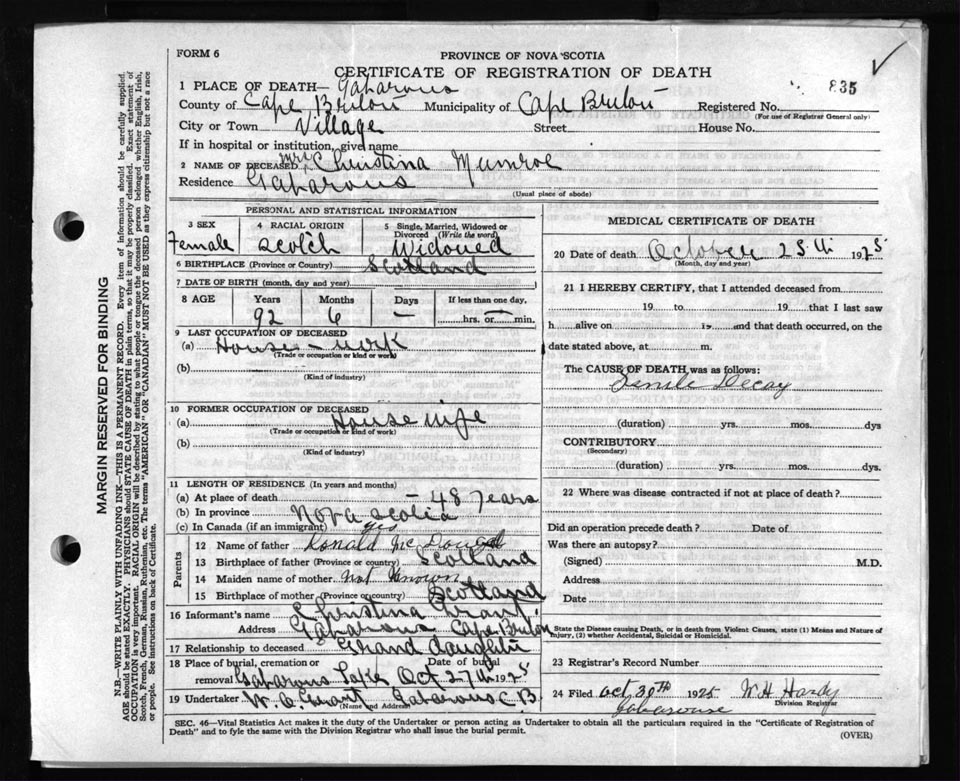 FORM 6
PROVINCE OF NOVA SCOTIA
CERTIFICATE OF REGISTRATION OF DEATH
835
1 PLACE OF DEATH— Gabarous
County of Cape Breton Municipality of Cape Breton Registered No.
(For use of Registrar General only)
City or Town Village Street House No.
If in hospital or institution, give name
2 NAME OF DECEASED Mrs Christina Munroe
Residence Gabarous
(Usual place of abode)
PERSONAL AND STATISTICAL INFORMATION
3 SEX 4 RACIAL ORIGIN 5 Single, Married, Widowed or Divorced (Write the word)
Female Scotch Widowed
6 BIRTHPLACE (Province or Country) Scotland
7 DATE OF BIRTH (month, day and year)
8 AGE Years Months Days If less than one day,
92 6 — hrs. or min.
9 LAST OCCUPATION OF DECEASED
(a) House - work
(Trade or occupation or kind or work)
(b)
(Kind of industry)
10 FORMER OCCUPATION OF DECEASED
(a) House wife
(Trade or occupation or kind of work)
(b)
(Kind of industry)
11 LENGTH OF RESIDENCE (In years and months)
(a) At place of death - 48 years
(b) In province Nova Scotia
(c) In Canada (if an immigrant) yes
Parents
12 Name of father Ronald Mc Dougal
13 Birthplace of father (Province or country) Scotland
14 Maiden name of mother Not Known
15 Birthplace of mother (Province or country) Scotland
16 Informant's name Christina Grant
Address Gabarous Cape Breton
17 Relationship to deceased Grand daughter
18 Place of burial, cremation or Date of burial
removal Gabarous Oct 27th 1925
19 Undertaker Gabarous C.B.
(Name and Address)
MEDICAL CERTIFICATE OF DEATH
20 Date of death October 25th 1925
(Month, day and year)
21 I HEREBY CERTIFY, that I attended deceased from
19 to 19 that I last saw
h alive on 19 and that death occurred, on the
date stated above, at m.
The CAUSE OF DEATH was as follows:
Senile Decay
(duration) yrs. mos. dys
CONTRIBUTORY
(Secondary)
(duration) yrs. mos. dys.
22 Where was disease contracted if not at place of death?
Did an operation precede death? Date of
Was there an autopsy?
(Signed) M.D.
Address
Date
State the Disease causing Death, or in death from Violent Causes, state (1) Means and Nature of
Injury, (2) whether Accidental, Suicidal or Homicidal.
23 Registrar's Record Number
24 Filed Oct 30th 1925 W.H. Hardy
Division Registrar
Gabarouse
SEC. 46—Vital Statistics Act makes it the duty of the Undertaker or person acting as Undertaker to obtain all the particulars required in the "Certificate of Registration of
Death" and to fyle the same with the Division Registrar who shall issue the burial permit.
(OVER)
MARGIN RESERVED FOR BINDING
N.B.—WRITE PLAINLY WITH UNFADING INK—THIS IS A PERMANENT RECORD. Every item of information should be carefully supplied.
AGE should be stated EXACTLY. PHYSICIANS should STATE CAUSE OF DEATH in plain terms, so that it may be properly classified. Exact statement of
OCCUPATION is very important. RACIAL ORIGIN will be described by stating to what people or tongue the deceased person belonged whether English, Irish,
Scotch, French, German, Russian, Ruthenian, etc. The terms "AMERICAN" OR "CANADIAN" MUST NOT BE USED as they express citizenship but not a race
or people. See instructions on back of Certificate.